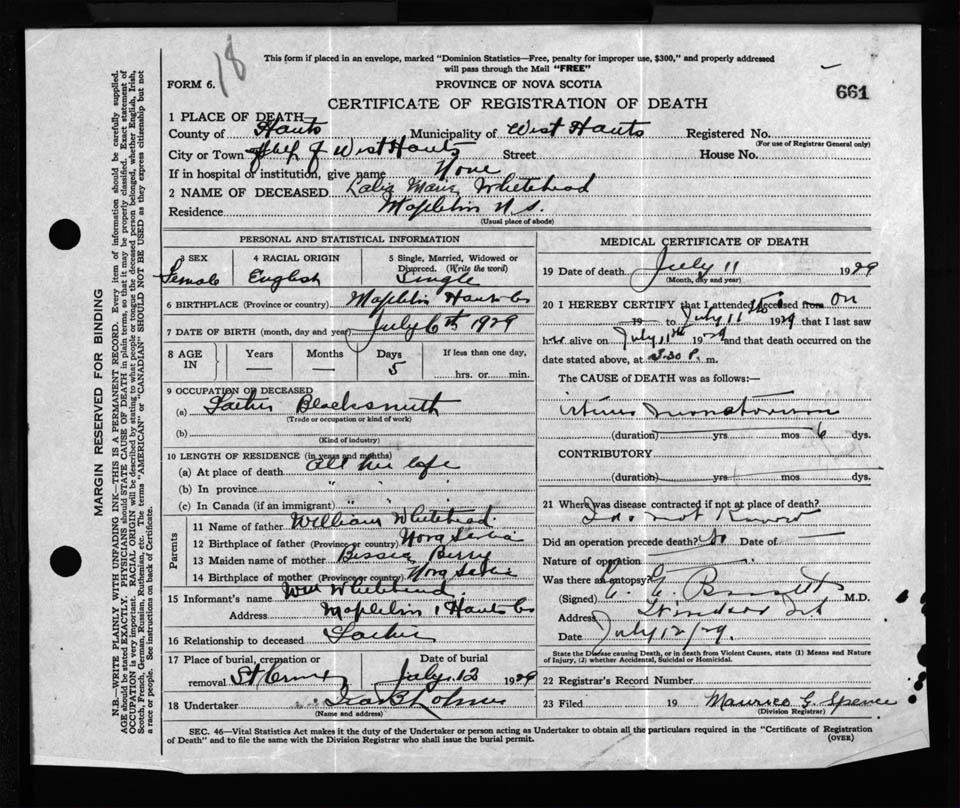 18
This form if placed in an envelope, marked "Dominion Statistics—Free, penalty for improper use, $300," and properly addressed
will pass through the Mail "FREE"
FORM 6.
PROVINCE OF NOVA SCOTIA
661
CERTIFICATE OF REGISTRATION OF DEATH
1 PLACE OF DEATH
County of Hants Municipality of West Hants Registered No.
(For use of Registrar General only)
City or Town of West Hants Street House No.
If in hospital or institution, give name None
2 NAME OF DECEASED Marie Whitehead
Residence N.S.
(Usual place of abode)
MARGIN RESERVED FOR BINDING
N.B.—WRITE PLAINLY WITH UNFADING INK—THIS IS A PERMANENT RECORD. Every item of information should be carefully supplied.
AGE should be stated EXACTLY. PHYSICIANS should STATE CAUSE OF DEATH in plain terms, so that it may be properly classified. Exact statement of
OCCUPATION is very important. RACIAL ORIGIN will be described by stating to what people or tongue the deceased person belonged, whether English, Irish,
Scotch, French, German, Russian, Ruthenian, etc. The terms "AMERICAN" or "CANADIAN" SHOULD NOT BE USED as they express citizenship but not
a race or people. See instructions on back of Certificate.
PERSONAL AND STATISTICAL INFORMATION
3 SEX 4 RACIAL ORIGIN 5 Single, Married, Widowed or
Divorced. (Write the word)
Female English Single
6 BIRTHPLACE (Province or country) Hants Co
7 DATE OF BIRTH (month, day and year) July 6th 1929
8 AGE IN Years Months Days If less than one day,
— — 5 hrs. or min.
9 OCCUPATION OF DECEASED
(a) Father Blacksmith
(Trade or occupation or kind of work)
(b)
(Kind of industry)
10 LENGTH OF RESIDENCE (in years and months)
(a) At place of death all her life
(b) In province " "
(c) In Canada (if an immigrant) " "
Parents
11 Name of father William Whitehead
12 Birthplace of father (Province or country) Nova Scotia
13 Maiden name of mother Bessie Berry
14 Birthplace of mother (Province or country) Nova Scotia
15 Informant's name Wm Whitehead
Address Hants Co
16 Relationship to deceased Father
17 Place of burial, cremation or Date of burial
removal July 12 1929
18 Undertaker
(Name and address)
MEDICAL CERTIFICATE OF DEATH
19 Date of death July 11 1929
(Month, day and year)
20 I HEREBY CERTIFY that I attended deceased from on
19 to July 11th 1929 that I last saw
her alive on July 11th 1929 and that death occurred on the
date stated above, at 3.30 P. m.
The CAUSE of DEATH was as follows:—
(duration) yrs mos 6 dys.
CONTRIBUTORY
(duration) yrs mos dys.
21 Where was disease contracted if not at place of death?
Do not know
Did an operation precede death? No Date of —
Nature of operation
Was there an autopsy?
(Signed) M.D.
Address Windsor
Date July 12/29.
State the Disease causing Death, or in death from Violent Causes, state (1) Means and Nature
of Injury, (2) whether Accidental, Suicidal or Homicidal.
22 Registrar's Record Number
23 Filed 19 Maurice G. Spence
(Division Registrar)
SEC. 46—Vital Statistics Act makes it the duty of the Undertaker or person acting as Undertaker to obtain all the particulars required in the "Certificate of Registration
of Death" and to file the same with the Division Registrar who shall issue the burial permit.
(OVER)